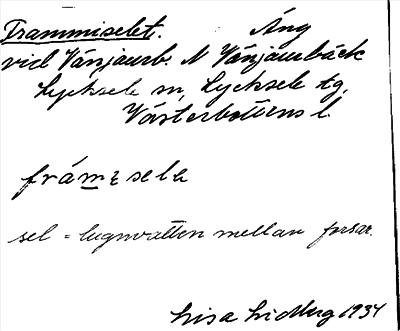 Frammiselet. Äng
vid Vänjaurb. N Vänjaurbäck
Lycksele sn, Lycksele tg.
Västerbottens l.
sel = lugnvatten mellan forsar.
Lisa Lidberg 1934